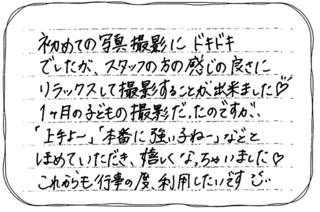 初めての写真撮影にドキドキ
でしたが、スタッフの方の感じの良さに
リラックスして撮影することが出来ました♡
1ヶ月の子どもの撮影だったのですが、
「上手よー」「本番に強い子ねー」などと
ほめていただき、嬉しくなっちゃいました♡
これからも行事の度、利用したいです